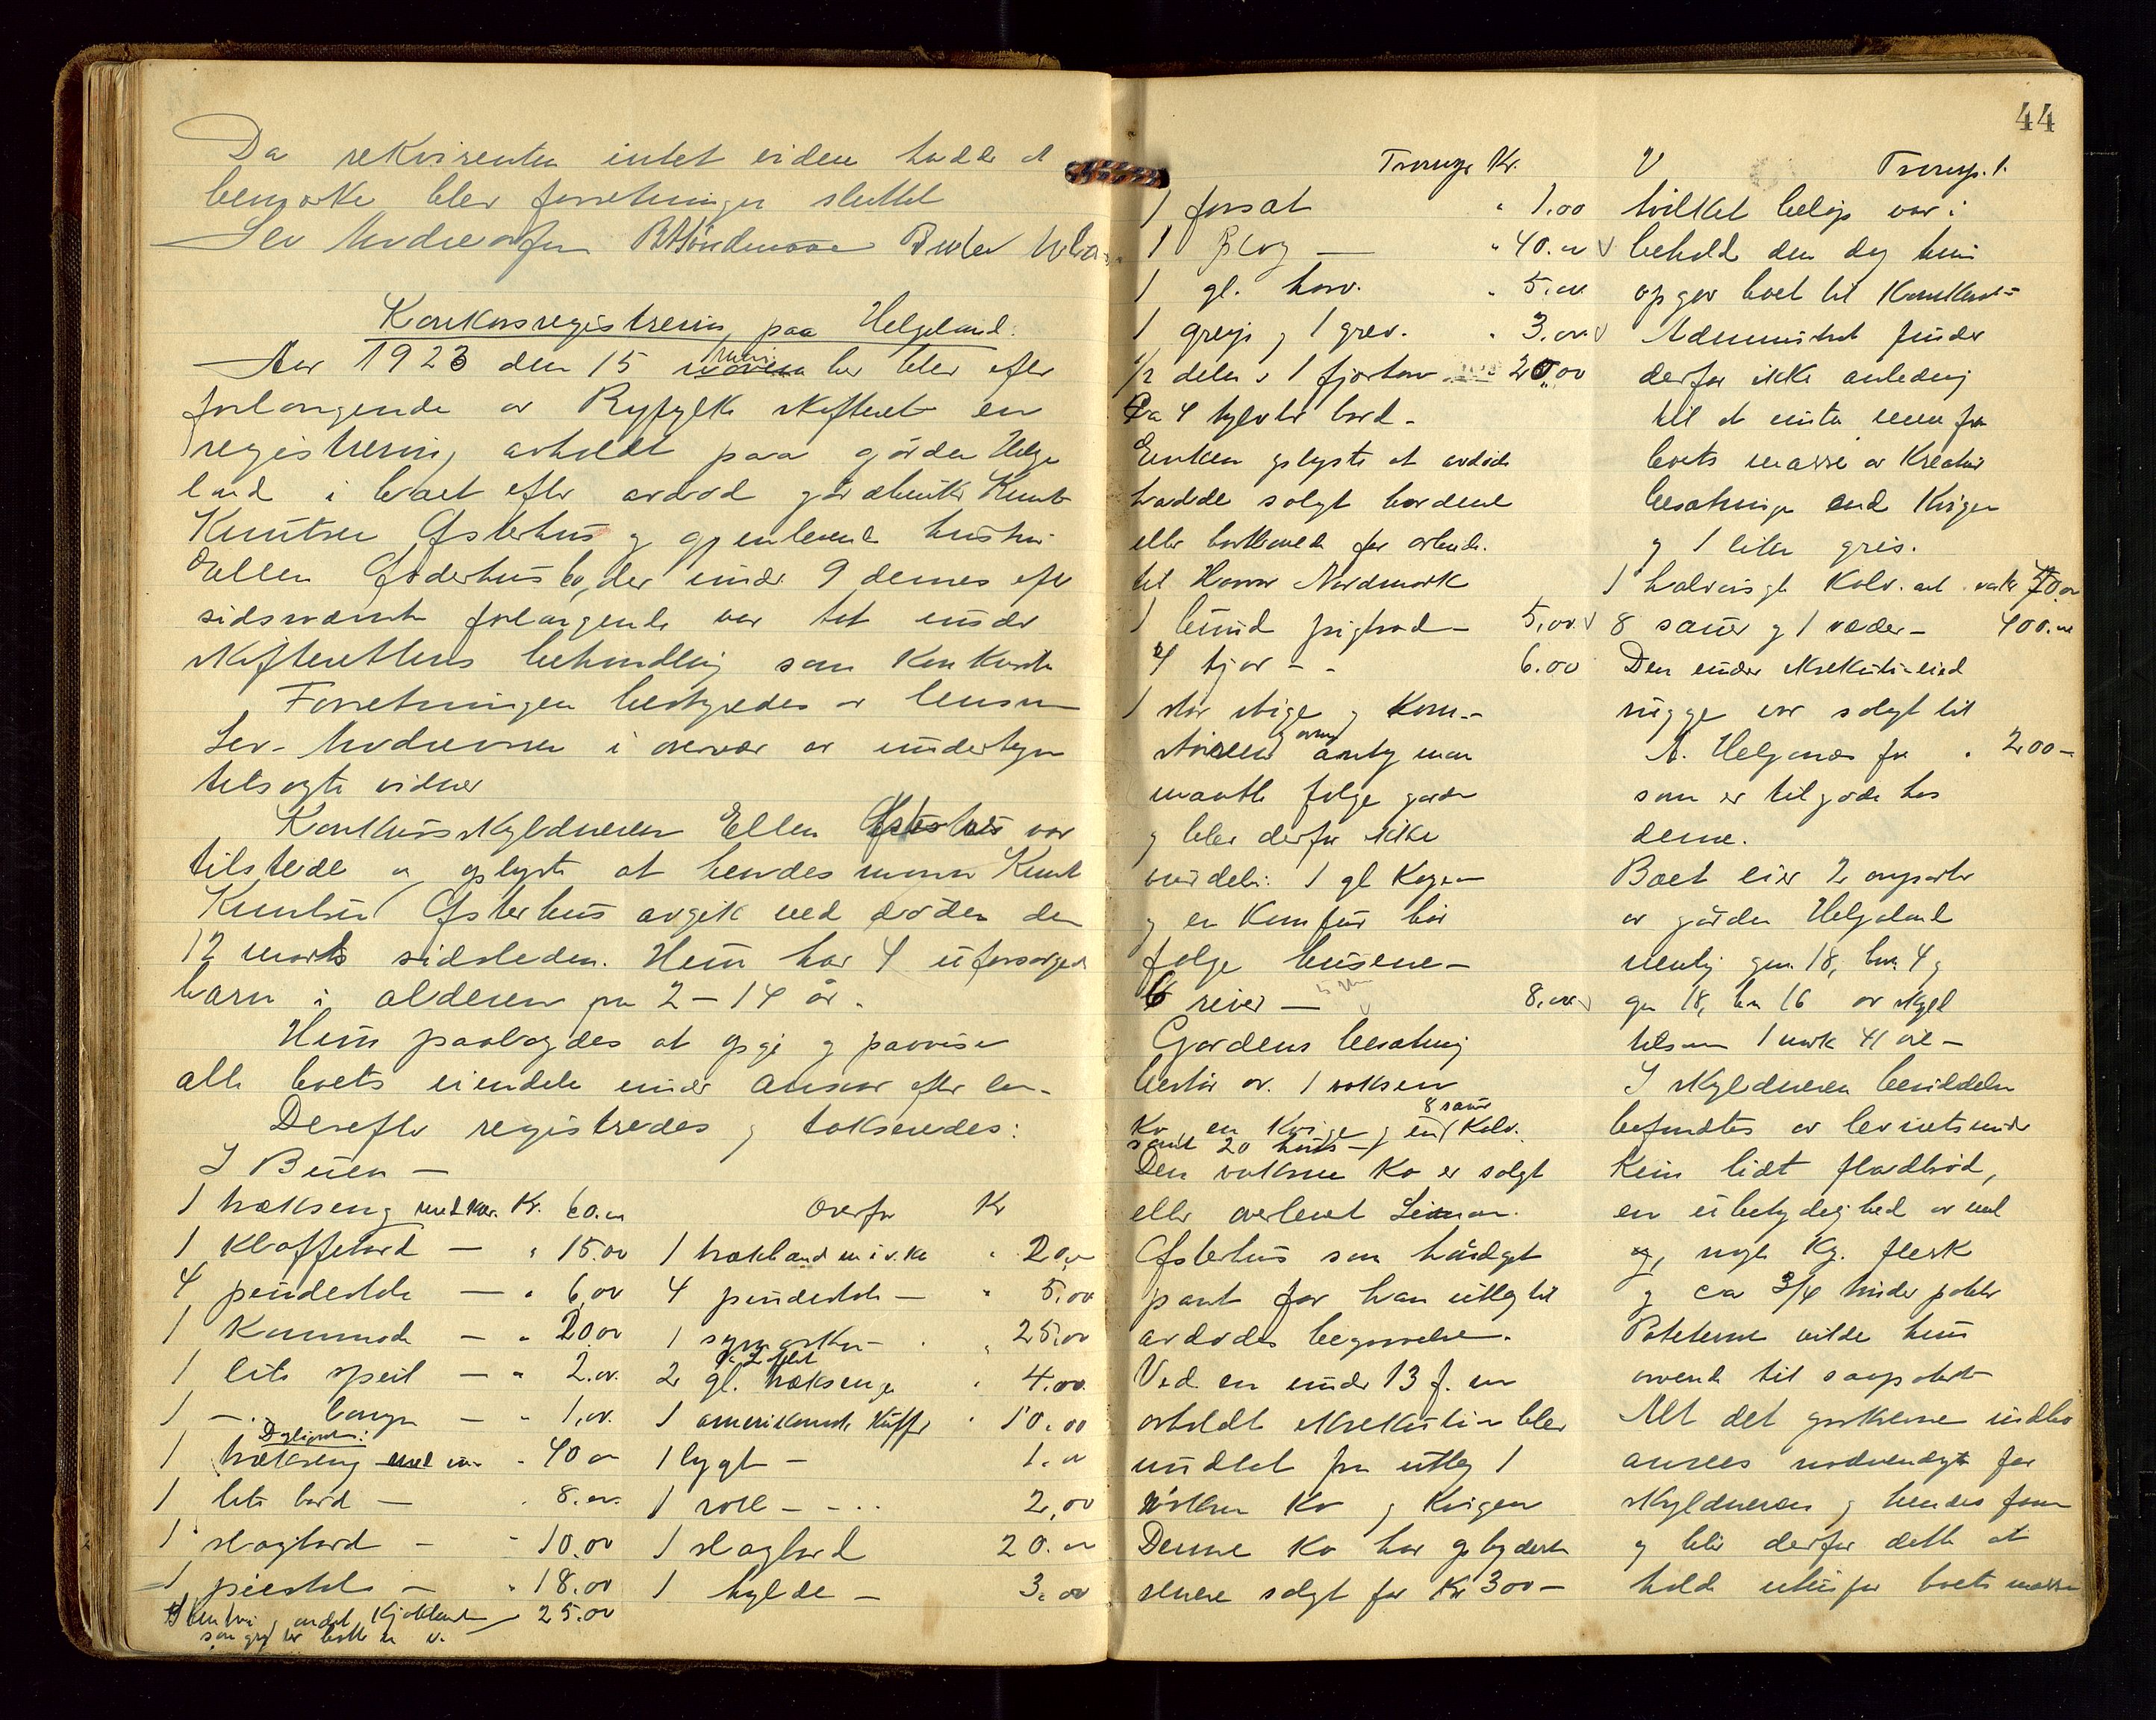 Da rekvirenten intet videre hadde at
bemerke blev forretningen sluttet
Konkursregistrering paa Helgeland.
Aar 1923 den 15 juni blev efter
forlangende av Ryfylke skifteret en
registrering avholdt paa gården Helge
land i boet efter avdød gårdbruker Knut
Knutsen Østerhus og gjenlevende hustru
Ellen Østerhus bo, der under 9 dennes efter
sidstnævnte forlangende var tat under
skifterettens behandling som konkursbo
Forretningen bestyredes av lensm
Sev. Andreassen i overvær av undertegn
tilsagte vidner
Konkursskyldneren Ellen Østerhus var
tilstede og oplyste at hendes mann Knut
Knutsen Østerhus avgik ved døden den
12 marts sidstleden. Hun har 4 uforsørgede
barn i alderen fra 2 - 14 år.
Hun paalagdes at opgi og paavise
alle boets eiendele under ansvar efter lov.
Derefter registredes og takseredes:
I Buen -
1 trækseng med vær. Kr. 60.00
1 Klaffebord - " 15.00
4 pindestole - " 6,00
1 Kommode - " 20.00
1 lite speil - " 2.00
1 - " lampe - " 1,00.
Dagligstuen:
1 trækseng " 40 00
1 lite bord - " 8.00
1 slagbord - " 10.00
1 piestol - " 18.00
andet Kjøkken 25.00
Overført Kr
1 " 20.00
4 pindestole - " 5.00
1 symaskin - " 25.00
På Loftet
2 gl. træksenge " 4.00.
1 amerikansk Kuffert " 10.00
1 lygt - 1.00
1 rok - - 2,00
1 slagbord 20.00
1 hylde - 3.00
44
Transp. Kr.
1 " 1.00
1 Plog - " 40.00
1 gl. harv. " 5.00
1 greip og 1 grev. " 3.00
1/2 delen i 1 20.00
Ca 4 tylvter bord -
Enken oplyste at avdøde
hadde solgt bordene
eller for arbeide.
til Nordmark
1 bund pigtråd - 5,00
4 tjor - - 6.00
1 stor stige og Korn-
og maatte følge garden
og blev derfor ikke
vurdert. 1 gl
og en Komfur bør
følge husene -
6 river - 8.00
Gardens besætning
består av. 1 voksen
Ko, en Kvige og en Kalv.
8 sauer
samt 20 høns -
Den voksne Ko er solgt
eller overlevert Simon
Østerhus som håndgit
pant for han utlegt til
avdødes begravelse.
Ved en under 13 f. m
avholdt eksekution blev
undtat fra utlæg 1
voksen Ko og Kvigen
Denne Ko har
senere solgt for Kr 300 -
Transp.
hvilket beløp var i
behold den dag hun
opgav boet til Konkurs
Administrat finder
derfor ikke anledning
til at unta mere fra
boets masse av Kreatur
besætningen end Kvigen
og 1 liten gris.
1 halvårsgl. Kalv.
8 sauer og 1 væder - 400.00
Den under eksekution
rugge var solgt til
A. Helganes for " 200 -
som er tilgode hos
denne.
Boet eier 2 anparter
av gården Helgeland
nemlig gnr. 18, bnr. 4 og
gnr 18, bnr 16 av skyld
tilsam 1 mark 41 øre -
I skyldnerens besiddelse
befandtes av levnetsmid
Kun lidt fladbrød,
en ubetydelighed av mel
og, nogle Kg. flesk
og ca 3/4 tønder poteter
Poteterne vilde hun
anvende til sæpoteter
Alt det indbo
ansees nødvendigt for
skyldneren og hendes fam
og blir derfor dette at
holde utenfor boets masse